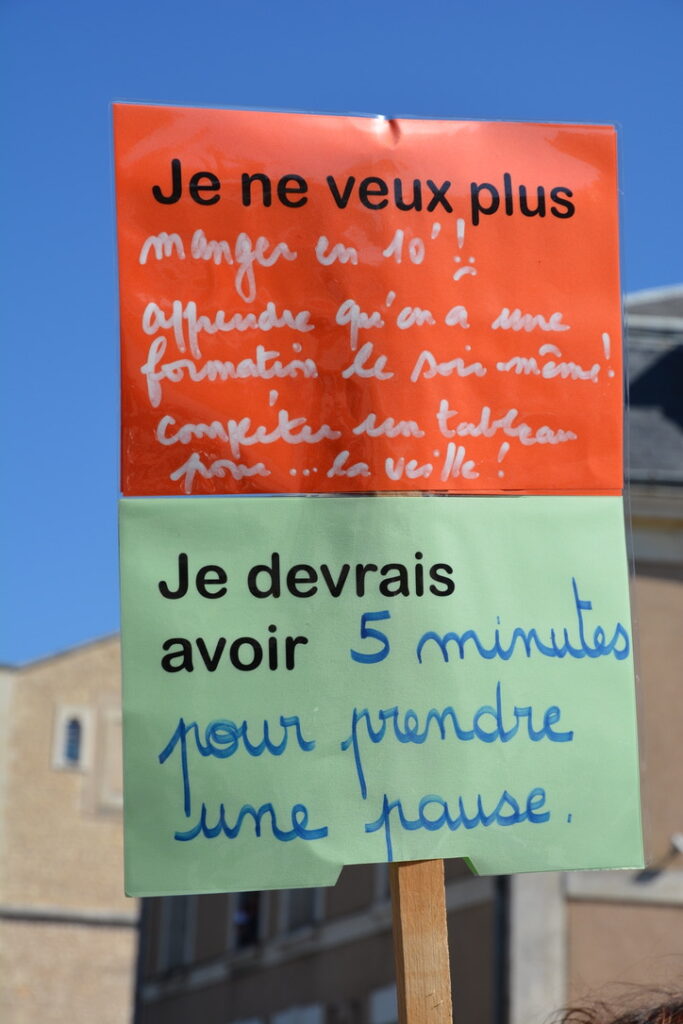 Je ne veux plus
manger en 10' !
apprendre qu'on a une
formation le soir-même !
compéter un tableau
pour ... la veille !
Je devrais
avoir 5 minutes
pour prendre
une pause.